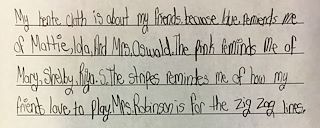 My kente cloth is about my friends. because blue reminds me
of Mattie, Ida, And Mrs. Oswald. The pink reminds Me of
Mary, Shelby, Riya. S. The stripes remindes me of how my
friends love to play. Mrs. Robinson is for the zig zag lines.